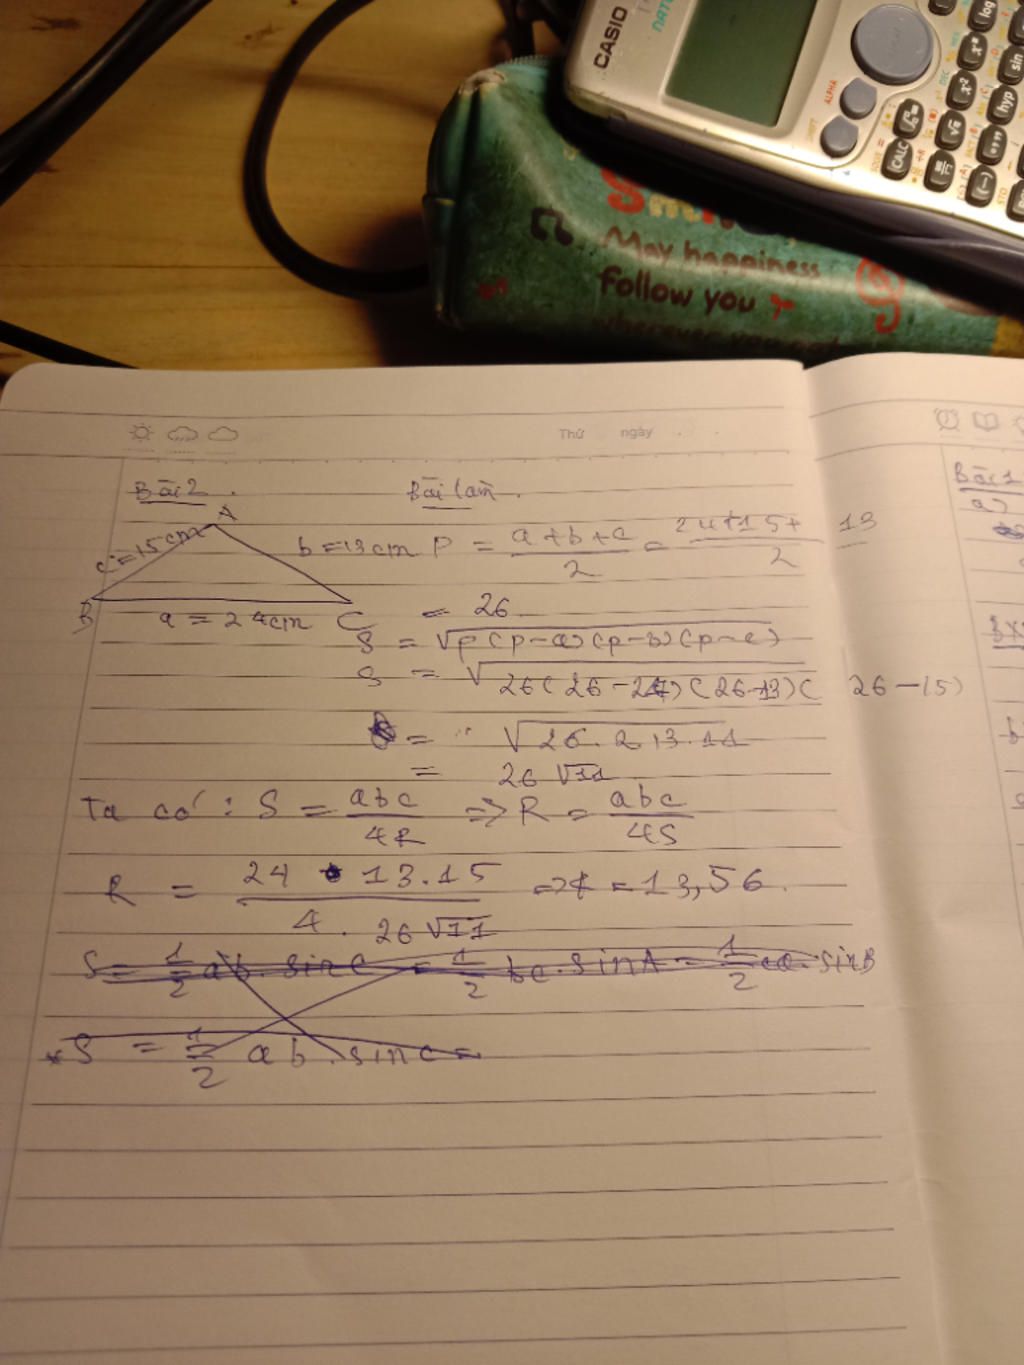 CASIO
NATU
ALPHA
SHIFT
CALC
log
sin
hyp
STO
May happiness
follow you
wherever you go
Thứ ngày
Bài 2. Bài làm.
A
c = 15cm
b = 13cm P = \frac{a+b+c}{2} = \frac{24+15+13}{2}
B a = 24cm C = 26
S = √p(p-a)(p-b)(p-c)
S = √26(26-24)(26-13)(26-15)
= √26.2.13.11
= 26√11
Ta có: S = \frac{abc}{4R} => R = \frac{abc}{4S}
R = \frac{24.13.15}{4.26√11} => R = 13,56.
S = \frac{1}{2}ab.sinC = \frac{1}{2}bc.sinA = \frac{1}{2}ca.sinB
*S = \frac{1}{2}ab.sinC =
Bài 1
a)